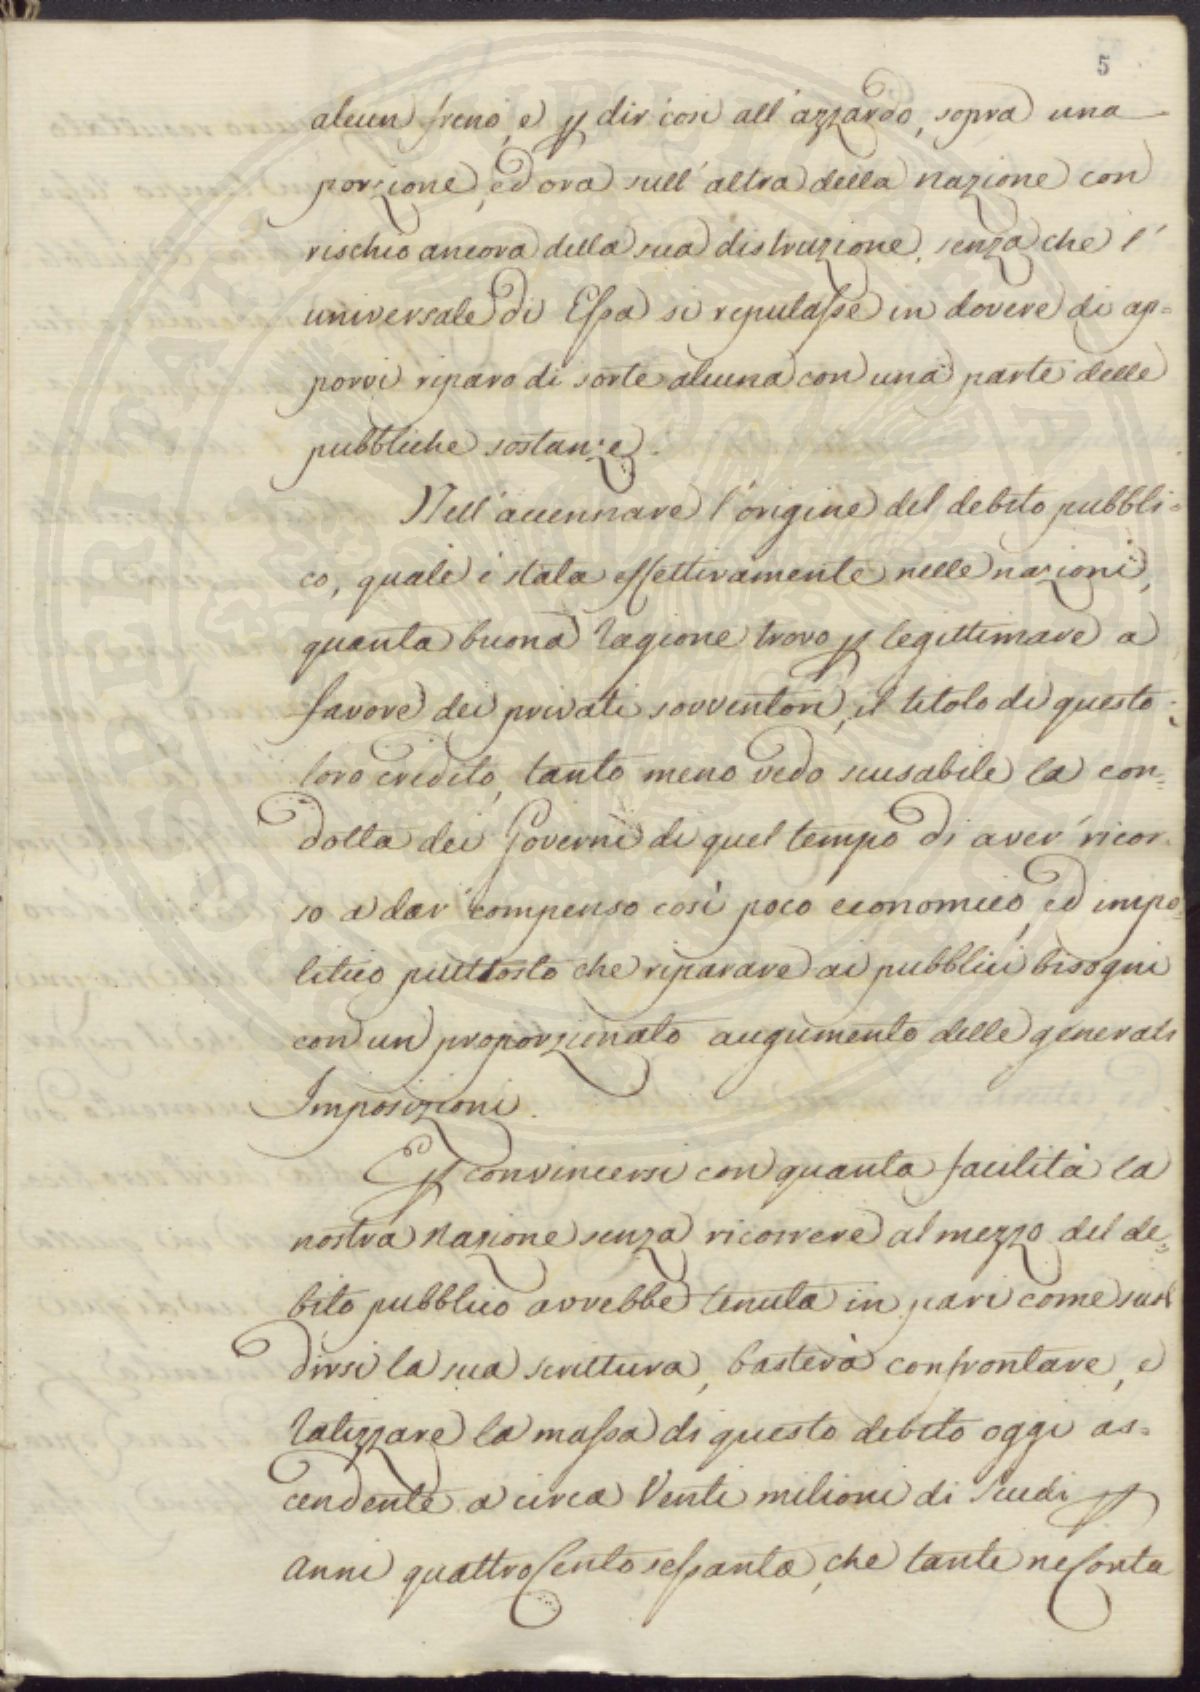 5
alcun freno, e p dir così all'azzardo, sopra una
porzione, ed ora sull'altra della Nazione con
rischio ancora della sua distruzione, senza che l'
universale di Essa si reputasse in dovere di ap=
porvi riparo di sorte alcuna con una parte delle
pubbliche sostanze.
Nell'accennare l'origine del debito pubbli=
co, quale è stata effettivamente nelle nazioni,
quanta buona ragione trovo p legittimare a
favore dei privati sovventori, il titolo di questo
loro credito, tanto meno vedo scusabile la con=
dotta dei Governi di quel tempo di aver ricor=
so a dar compenso così poco economico, ed impo=
litico piuttosto che riparare ai pubblici bisogni
con un proporzionato augumento delle generali
Imposizioni.
P convincersi con quanta facilità la
nostra Nazione senza ricorrere al mezzo del de=
bito pubblico avrebbe tenuta in pari come suol
dirsi la sua scrittura, basterà confrontare, e
ratizzare la massa di questo debito oggi as=
cendente a circa Venti milioni di Scudi p
anni quattro Cento sessanta, che tanti ne Conta